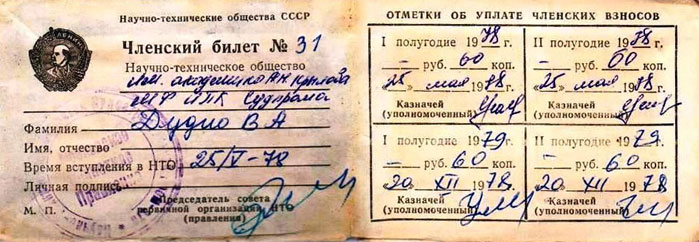 ЛЕНИН
Научно-технические общества СССР
Членский билет № 31
Научно-техническое общество
им. академика А.Н. Крылова
МФ ИПК Судпрома
Фамилия Дудко В А
Имя, отчество
Время вступления в НТО 25/V-78
Личная подпись
Председатель совета
М. П. первичной организации НТО
(правления)
ОТМЕТКИ ОБ УПЛАТЕ ЧЛЕНСКИХ ВЗНОСОВ
I полугодие 1978 г.
– руб. 60 коп.
25 мая 1978
Казначей
(уполномоченный)
II полугодие 1978 г.
– руб. 60 коп.
25 мая 1978
Казначей
(уполномоченный)
I полугодие 1979 г.
– руб. 60 коп.
20 XII 1978
Казначей
(уполномоченный)
II полугодие 1979 г.
– руб. 60 коп.
20 XII 1978
Казначей
(уполномоченный)